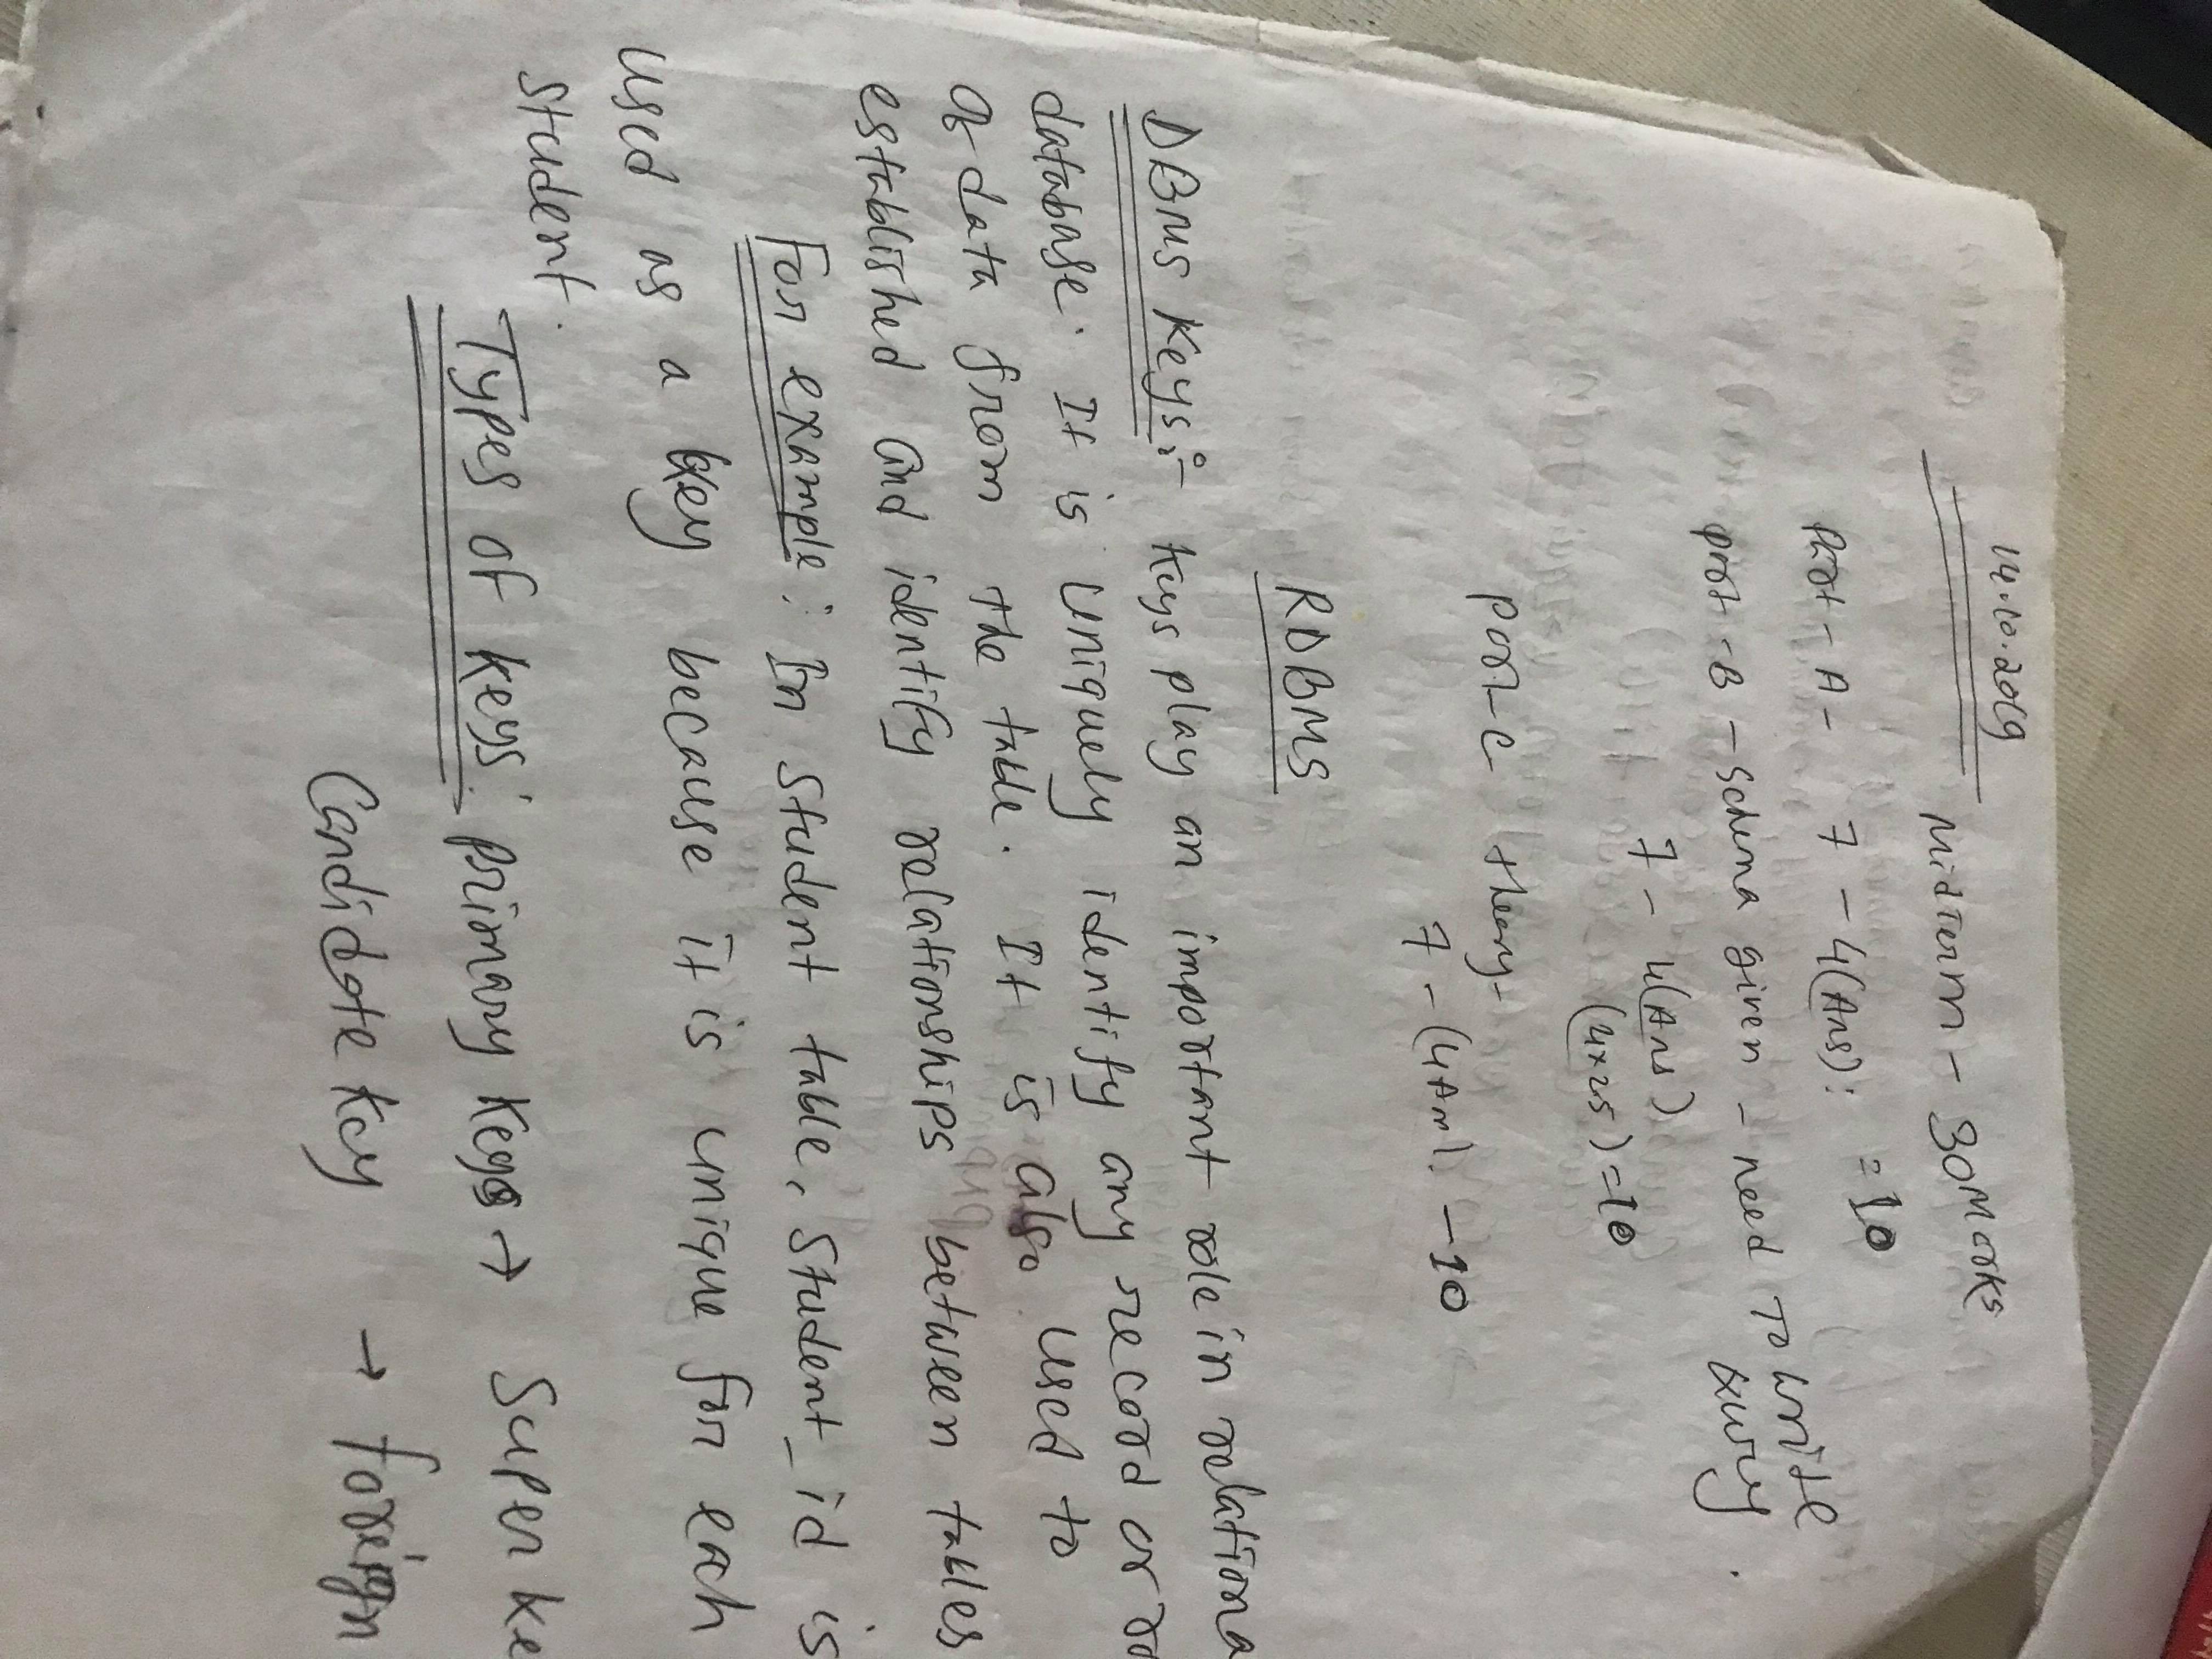 14.10.2019
Midterm - 30 Marks
Part - A - 7 - 4(Ans): = 10
part - B - Schema given - need To write
7 - 4(Ans)
(4x2.5) = 10
part-C theory-
7 - (4 Ans). - 10
RDBMS
DBMS Keys:- Keys play an important role in relationa
database. It is uniquely identify any record or ro
of data from the table. It is also used to
established and identify relationships between tables
For example: In Student table, Student_id is
used as a key because it is unique for each
student.
Types of keys: primary Keys → Super ke
Candidate Key → foreign